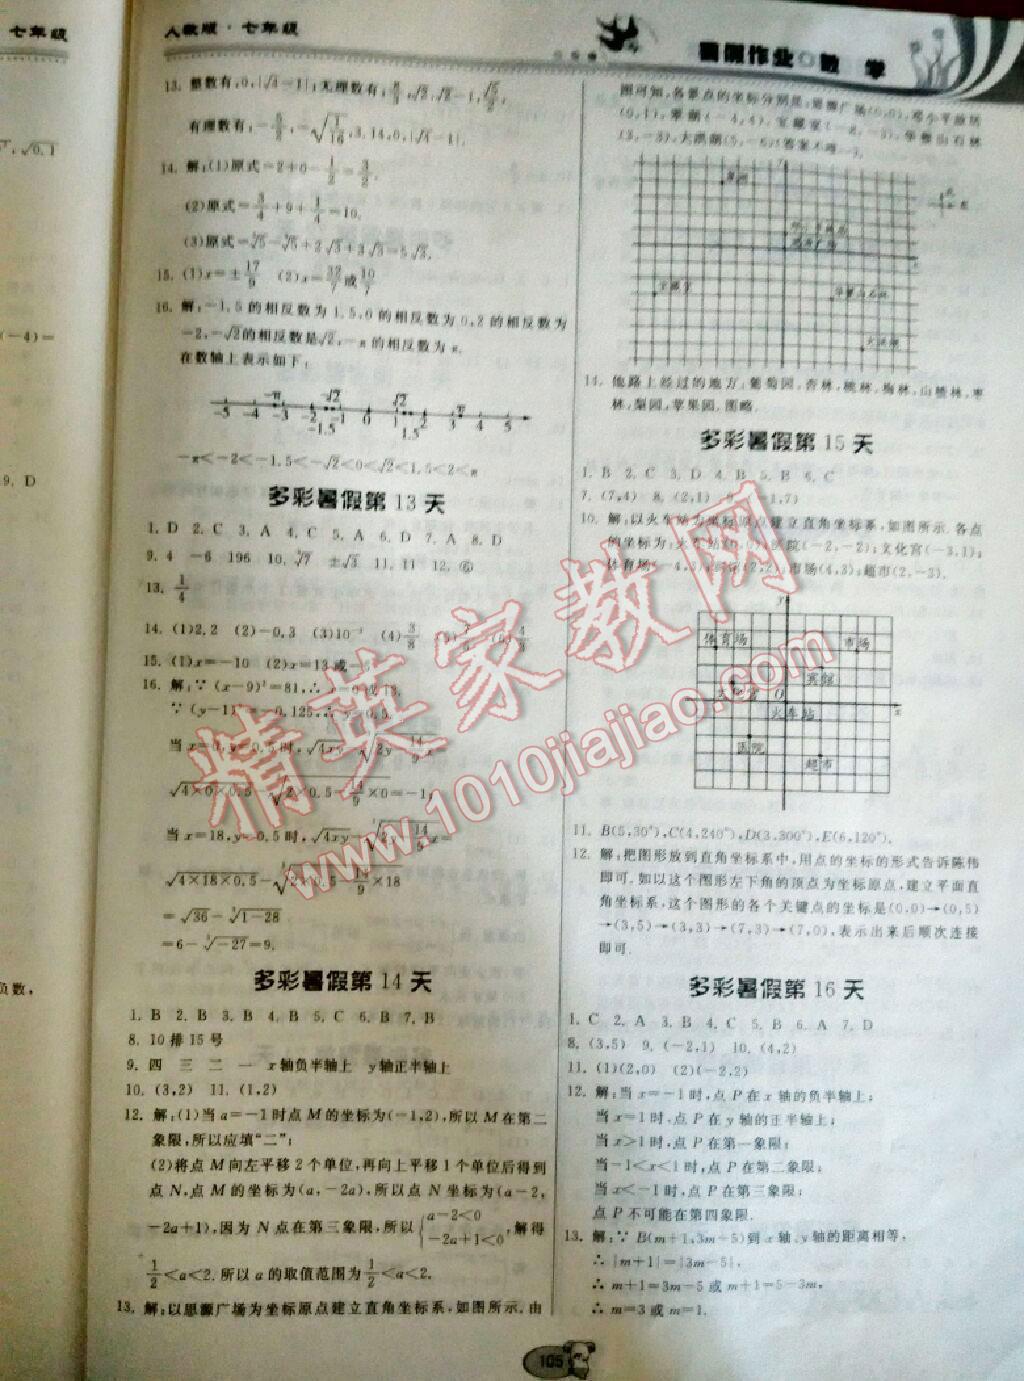 七年级
人教版·七年级
暑假作业 数 学
13. 整数有,0,|√4-1|;无理数有:
有理数有,-√(1/16),3.14,0,|√4-1|.
14. 解:(1)原式=2+0-1/2=3/2.
(2)原式=3/4+9+1/4=10.
15. (1)x=±17/9 (2)x=32/7或10/7
16. 解:-1.5的相反数为1.5,0的相反数为0,2的相反数为
-2,-√2的相反数是√2,-π的相反数为π.
在数轴上表示如下:
-π -√2 √2 π
-5 -4 -3 -2 -1 0 1 2 3 4 5
-1.5 1.5
-π<-2<-1.5<-√2<0<√2<1.5<2<π
多彩暑假第13天
1. D 2. C 3. A 4. C 5. A 6. D 7. A 8. D
9. 4 -6 196 10. ±√3 11. 11 12. ⑥
13. 1/4
14. (1)2.2 (2)-0.3 (3)10⁻¹ (4)3/8
15. (1)x=-10 (2)x=13或
16. 解:∵(x-9)²=81,∴x=0或18.
当x=0,y=0.5时,
当x=18,y=0.5时,
=√36-∛(1-28)
=6-∛(-27)=9.
多彩暑假第14天
1. B 2. B 3. B 4. B 5. C 6. B 7. B
8. 10排15号
9. 四 三 二 一 x轴负半轴上 y轴正半轴上
10. (3,2) 11. (1,2)
12. 解:(1)当a=-1时点M的坐标为(-1,2),所以M在第二
象限,所以应填“二”;
(2)将点M向左平移2个单位,再向上平移1个单位后得到
点N,点M的坐标为(a,-2a),所以点N的坐标为(a-2,
-2a+1),因为N点在第三象限,所以{a-2<0 -2a+1<0,解得
1/2<a<2.所以a的取值范围为1/2<a<2.
13. 解:以思源广场为坐标原点建立直角坐标系,如图所示.由
图可知,各景点的坐标分别是:思源广场(0,0),邓小平故居
(0,1),翠湖(-4,4),宝鼎家(-8,-3),华蓥山石林
(3,-3),大洪湖(5,-6)(答案不唯一).
华蓥山石林
大洪湖
14. 他路上经过的地方:葡萄园,杏林,桃林,梅林,山楂林,枣
林,梨园,苹果园.图略.
多彩暑假第15天
1. B 2. C 3. D 4. B 5. B 6. C
7. (7,4) 8. (2,1)
10. 解:以火车站为坐标原点建立直角坐标系,如图所示.各点
的坐标为:火车站(0,0);医院(-2,-2);文化宫(-3,1);
体育场(-4,3);宾馆(2,2);市场(4,3);超市(2,-3).
y
体育场 市场
宾馆
文化宫 O x
火车站
医院
超市
11. B(5,30°),C(4,240°),D(3,300°),E(6,120°).
12. 解:把图形放到直角坐标系中,用点的坐标的形式告诉陈伟
即可.如以这个图形左下角的顶点为坐标原点,建立平面直
角坐标系,这个图形的各个关键点的坐标是(0,0)→(0,5)
→(3,5)→(3,3)→(7,3)→(7,0),表示出来后顺次连接
即可.
多彩暑假第16天
1. C 2. A 3. B 4. C 5. B 6. A 7. D
8. (3,5) 9. (-2,1) 10. (4,2)
11. (1)(2,0) (2)(-2,2)
12. 解:当x=-1时,点P在x轴的负半轴上;
当x=1时,点P在y轴的正半轴上;
当x>1时,点P在第一象限;
当-1<x<1时,点P在第二象限;
当x<-1时,点P在第三象限;
点P不可能在第四象限.
13. 解:∵B(m+1,3m-5)到x轴、y轴的距离相等,
∴|m+1|=|3m-5|,
∴m+1=3m-5或m+1=5-3m,
∴m=3或m=1.
105
精英家教网
www.1010jiajiao.com
√0.1
(-4)=
9. D
负数,